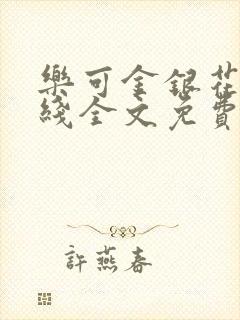 樂可金銀花
綫全文免費
許燕春